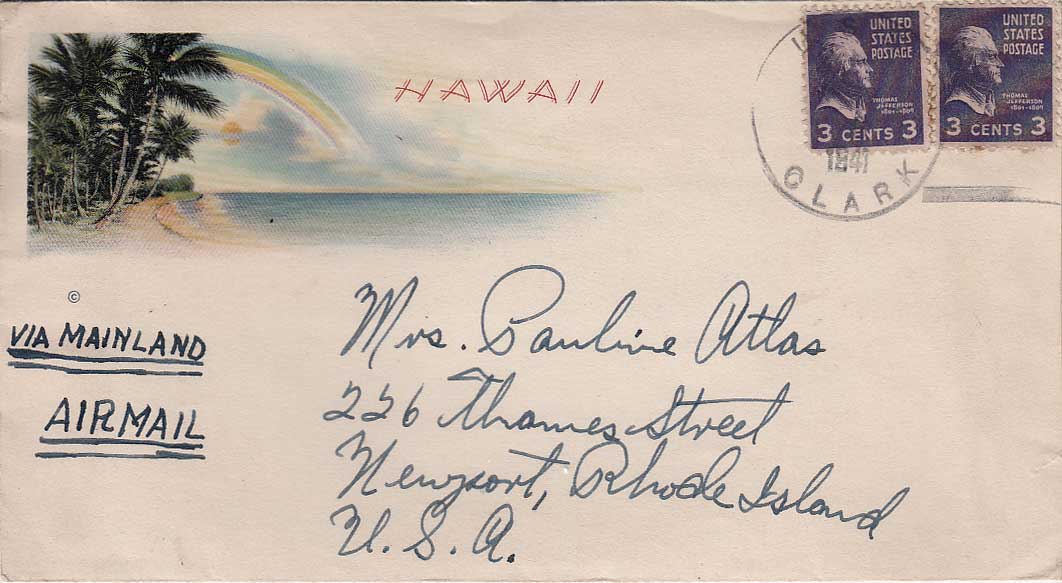 HAWAII
UNITED
STATES
POSTAGE
THOMAS
JEFFERSON
1801-1809
3 CENTS 3
UNITED
STATES
POSTAGE
THOMAS
JEFFERSON
1801-1809
3 CENTS 3
1941
CLARK
©
VIA MAINLAND
AIRMAIL
Mrs. Pauline Atlas
226 Thames Street
Newport, Rhode Island
U.S.A.